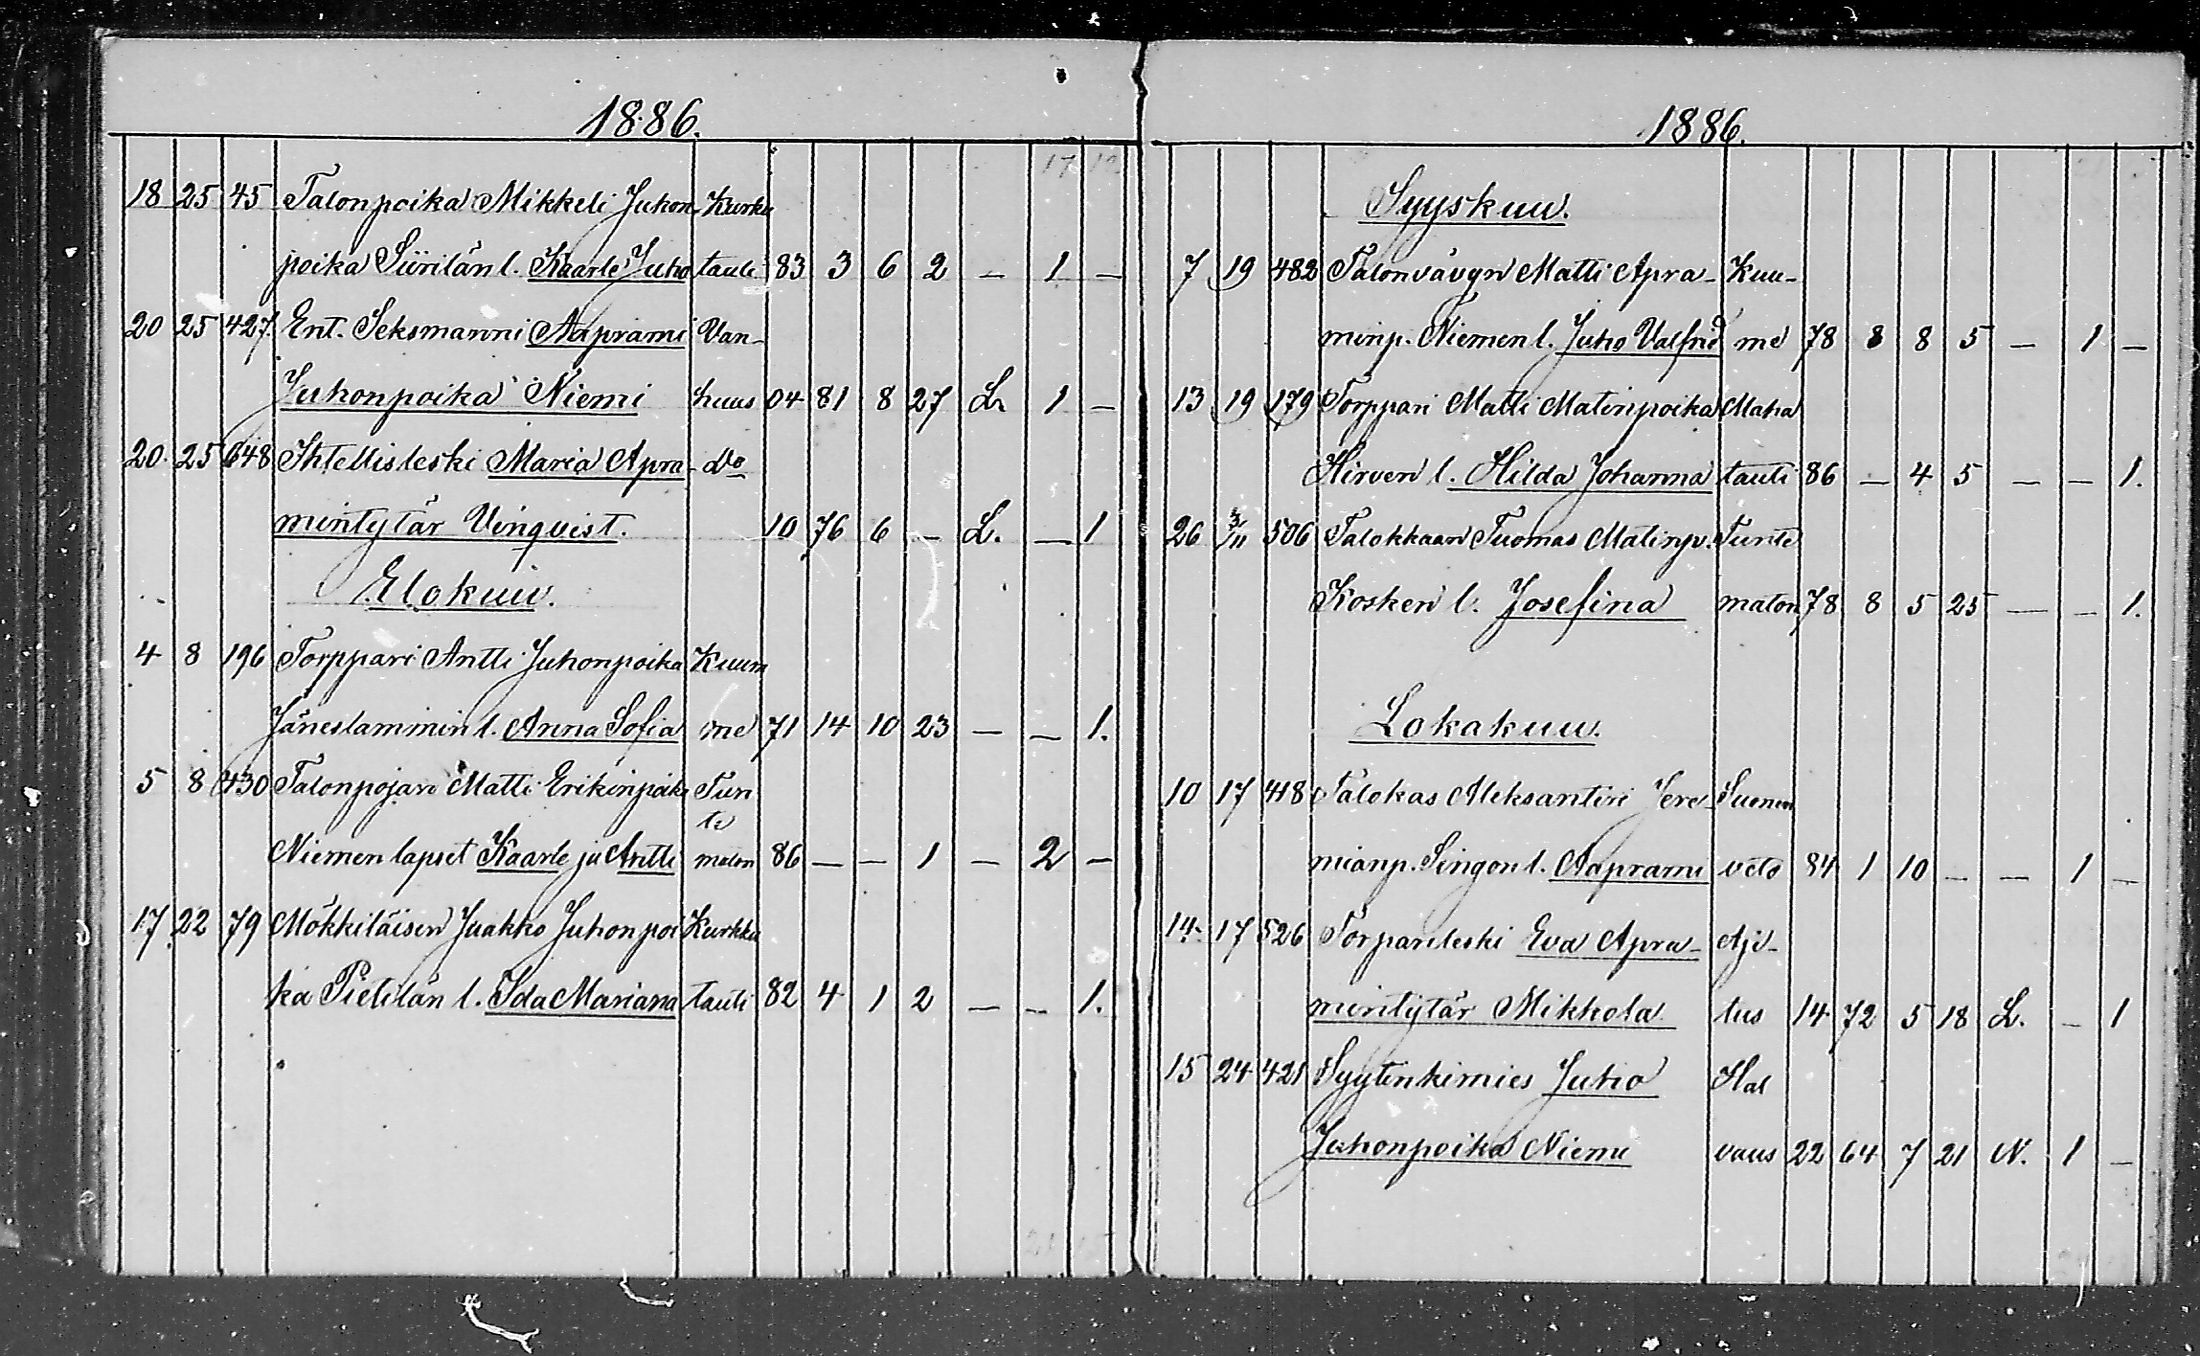 1886.
18 25 45 Talonpoika Mikkeli Juhon- Kurku
poika Siirilän l. Kaarle Juho tauti 83 3 6 2 — 1 —
20 25 427. Ent. Seksmanni Aaprami Van-
Juhonpoika Niemi huus 04 81 8 27 L. 1 —
20. 25 648 Ihtellisleski Maria Apra- do
mintytär Vinqvist. 10 76 6 — L. — 1
Elokuu.
4 8 196 Torppari Antti Juhonpoika Kuum
Jäneslammin l. Anna Sofia me 71 14 10 23 — — 1.
5 8 430 Talonpojan Matti Erikinpoika Tun
te
Niemen lapset Kaarle ja Antti maton 86 — — 1 — 2 —
17 22 79 Mökkiläisen Jaakko Juhonpoi Kurkku
ka Pietilän l. Ida Mariana tauti 82 4 1 2 — — 1.
1886.
Syyskuu.
7 19 482 Talonvävyn Matti Apra- Kuu-
minp. Niemen l. Juho Valfrid me 78 8 8 5 — 1 —
13 19 179 Torppari Matti Matinpoika Maha
Hirven l. Hilda Johanna tauti 86 — 4 5 — — 1.
26 3/11 506 Talokkaan Tuomas Matinp. Tunte
Kosken l. Josefina maton 78 8 5 25 — — 1.
Lokakuu.
10 17 418 Talokas Aleksantiri Jere- Suonen
mianp. Singon l. Aaprami veto 84 1 10 — — 1 —
14. 17 526 Torparileski Eva Apra- Aji-
mintytär Mikkola tus 14 72 5 18 L. — 1
15 24 421 Syytenkimies Juho Hal
Juhonpoika Niemi vaus 22 64 7 21 N. 1 —